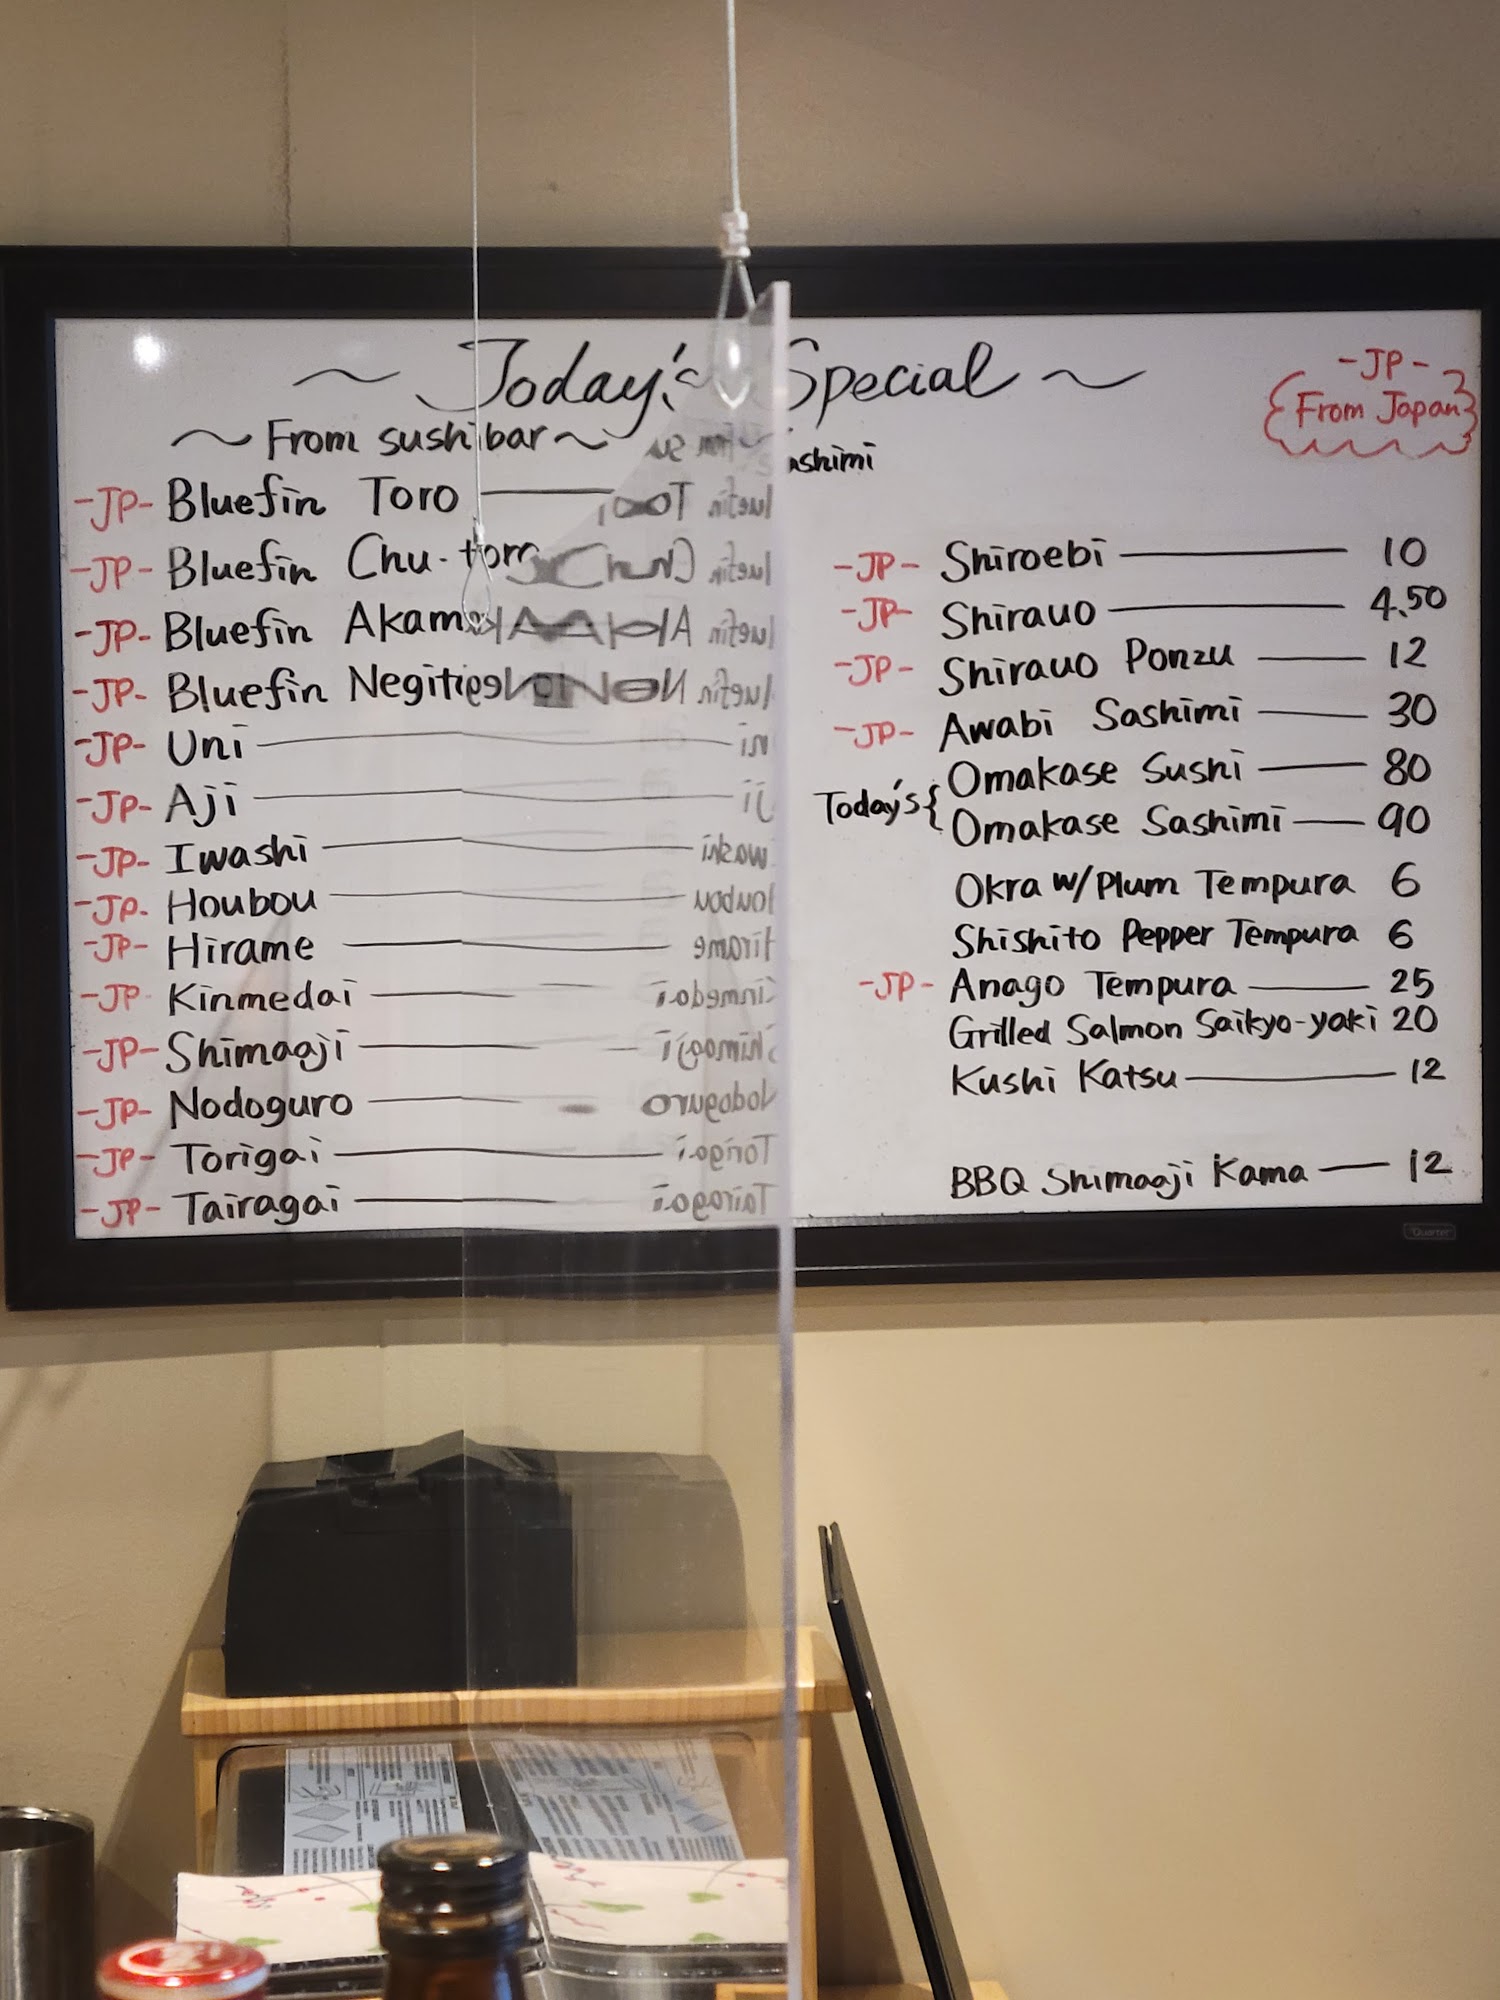 ~ Today's Special ~
-JP-
From Japan
~ From sushi bar ~
-JP- Bluefin Toro
-JP- Bluefin Chu-toro
-JP- Bluefin
-JP- Bluefin
-JP- Uni
-JP- Aji
-JP- Iwashi
-JP- Houbou
-JP- Hirame
-JP- Kinmedai
-JP- Shimaaji
-JP- Nodoguro
-JP- Torigai
-JP- Tairagai
-JP- Shiroebi 10
-JP- Shirauo 4.50
-JP- Shirauo Ponzu 12
-JP- Awabi Sashimi 30
Today's { Omakase Sushi 80
Omakase Sashimi 90
Okra w/Plum Tempura 6
Shishito Pepper Tempura 6
-JP- Anago Tempura 25
Grilled Salmon Saikyo-yaki 20
Kushi Katsu 12
BBQ Shimaaji Kama 12
Quartet